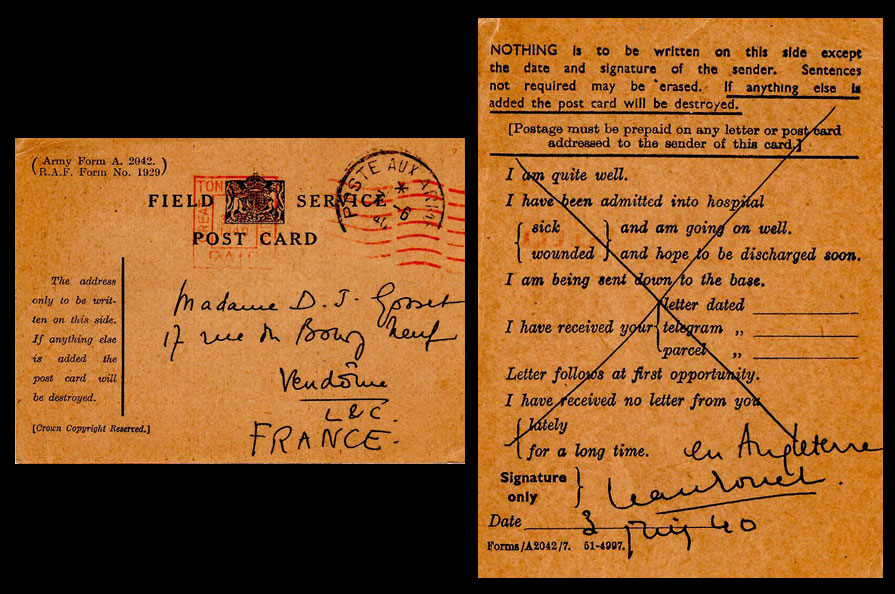 (Army Form A. 2042.
R.A.F. Form No. 1929)
FIELD SERVICE
POST CARD
POSTE AUX ARMÉ
6
40
TON
PAID
The address
only to be writ-
ten on this side.
If anything else
is added the
post card will
be destroyed.
[Crown Copyright Reserved.]
Madame D. J. Gosset
17 rue du Bourg Neuf
Vendôme
L&C.
FRANCE.
NOTHING is to be written on this side except
the date and signature of the sender. Sentences
not required may be erased. If anything else is
added the post card will be destroyed.
[Postage must be prepaid on any letter or post card
addressed to the sender of this card.]
I am quite well.
I have been admitted into hospital
sick and am going on well.
wounded and hope to be discharged soon.
I am being sent down to the base.
letter dated
I have received your telegram „
parcel „
Letter follows at first opportunity.
I have received no letter from you
lately
for a long time.
en Angleterre
Signature
only
Date 3 juin 40
Forms/A2042/7. 51-4997.